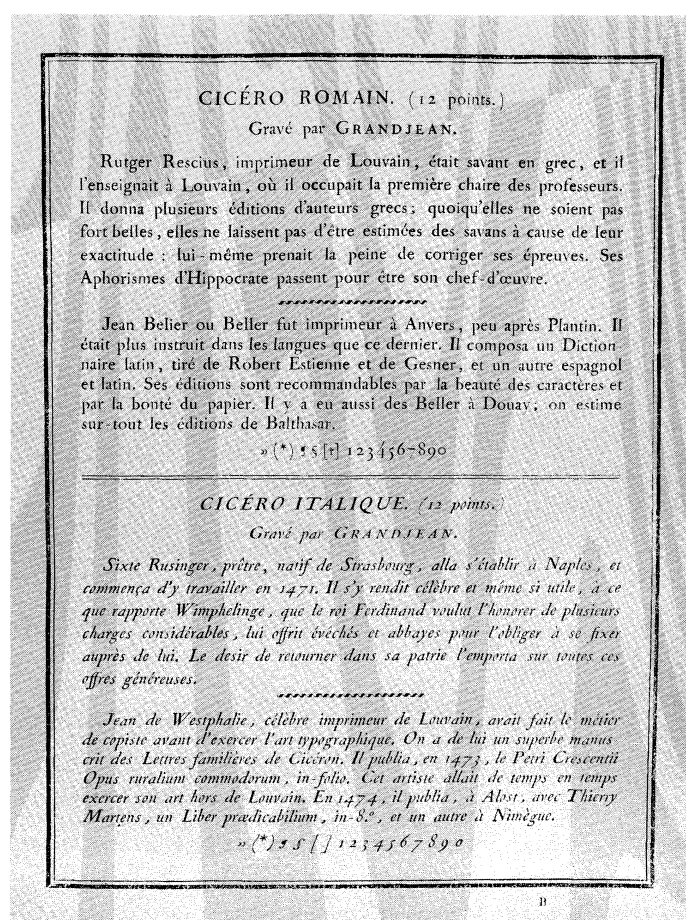 CICÉRO ROMAIN. (12 points.)
Gravé par GRANDJEAN.
Rutger Rescius, imprimeur de Louvain, était savant en grec, et il
l'enseignait à Louvain, où il occupait la première chaire des professeurs.
Il donna plusieurs éditions d'auteurs grecs; quoiqu'elles ne soient pas
fort belles, elles ne laissent pas d'être estimées des savans à cause de leur
exactitude : lui-même prenait la peine de corriger ses épreuves. Ses
Aphorismes d'Hippocrate passent pour être son chef-d'œuvre.
Jean Belier ou Beller fut imprimeur à Anvers, peu après Plantin. Il
était plus instruit dans les langues que ce dernier. Il composa un Diction
naire latin, tiré de Robert Estienne et de Gesner, et un autre espagnol
et latin. Ses éditions sont recommandables par la beauté des caractères et
par la bonté du papier. Il y a eu aussi des Beller à Douay, on estime
sur-tout les éditions de Balthasar.
» (*) ¶ § [†] 1234567890
CICÉRO ITALIQUE. (12 points.)
Gravé par GRANDJEAN.
Sixte Rusinger, prêtre, natif de Strasbourg, alla s'établir à Naples, et
commença d'y travailler en 1471. Il s'y rendit célèbre et même si utile, à ce
que rapporte Wimphelinge, que le roi Ferdinand voulut l'honorer de plusieurs
charges considérables, lui offrit évéchés et abbayes pour l'obliger à se fixer
auprès de lui. Le desir de retourner dans sa patrie l'emporta sur toutes ces
offres généreuses.
Jean de Westphalie, célèbre imprimeur de Louvain, avait fait le métier
de copiste avant d'exercer l'art typographique. On a de lui un superbe manus
crit des Lettres familières de Cicéron. Il publia, en 1473, le Petri Crescentii
Opus ruralium commodorum, in-folio. Cet artiste allait de temps en temps
exercer son art hors de Louvain. En 1474, il publia, à Alost, avec Thierry
Martens, un Liber prædicabilium, in-8.°, et un autre à Nimègue.
» (*) ¶ § [] 1234567890
B